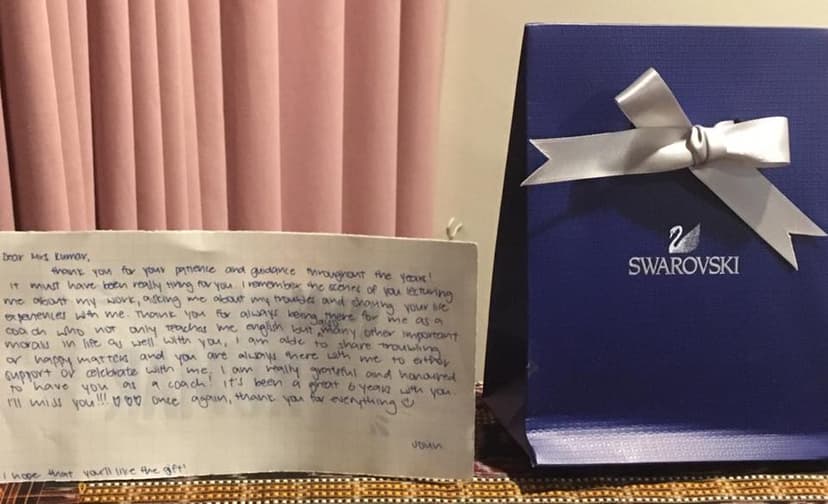 Dear Mrs Kumar,
Thank you for your patience and guidance throughout the years!
It must have been really tiring for you. I remember the scenes of you lecturing
me about my work, asking me about my troubles and sharing your life
experiences with me. Thank you for always being there for me as a
coach who not only teaches me english but also many other important
morals in life as well. With you, I am able to share troubling
or happy matters and you are always there with me to either
support or celebrate with me. I am really grateful and honoured
to have you as a coach! It's been a great 6 years with you.
I'll miss you!!! ♡♡♡ Once again, thank you for everything ☺
I hope that you'll like the gift!
SWAROVSKI